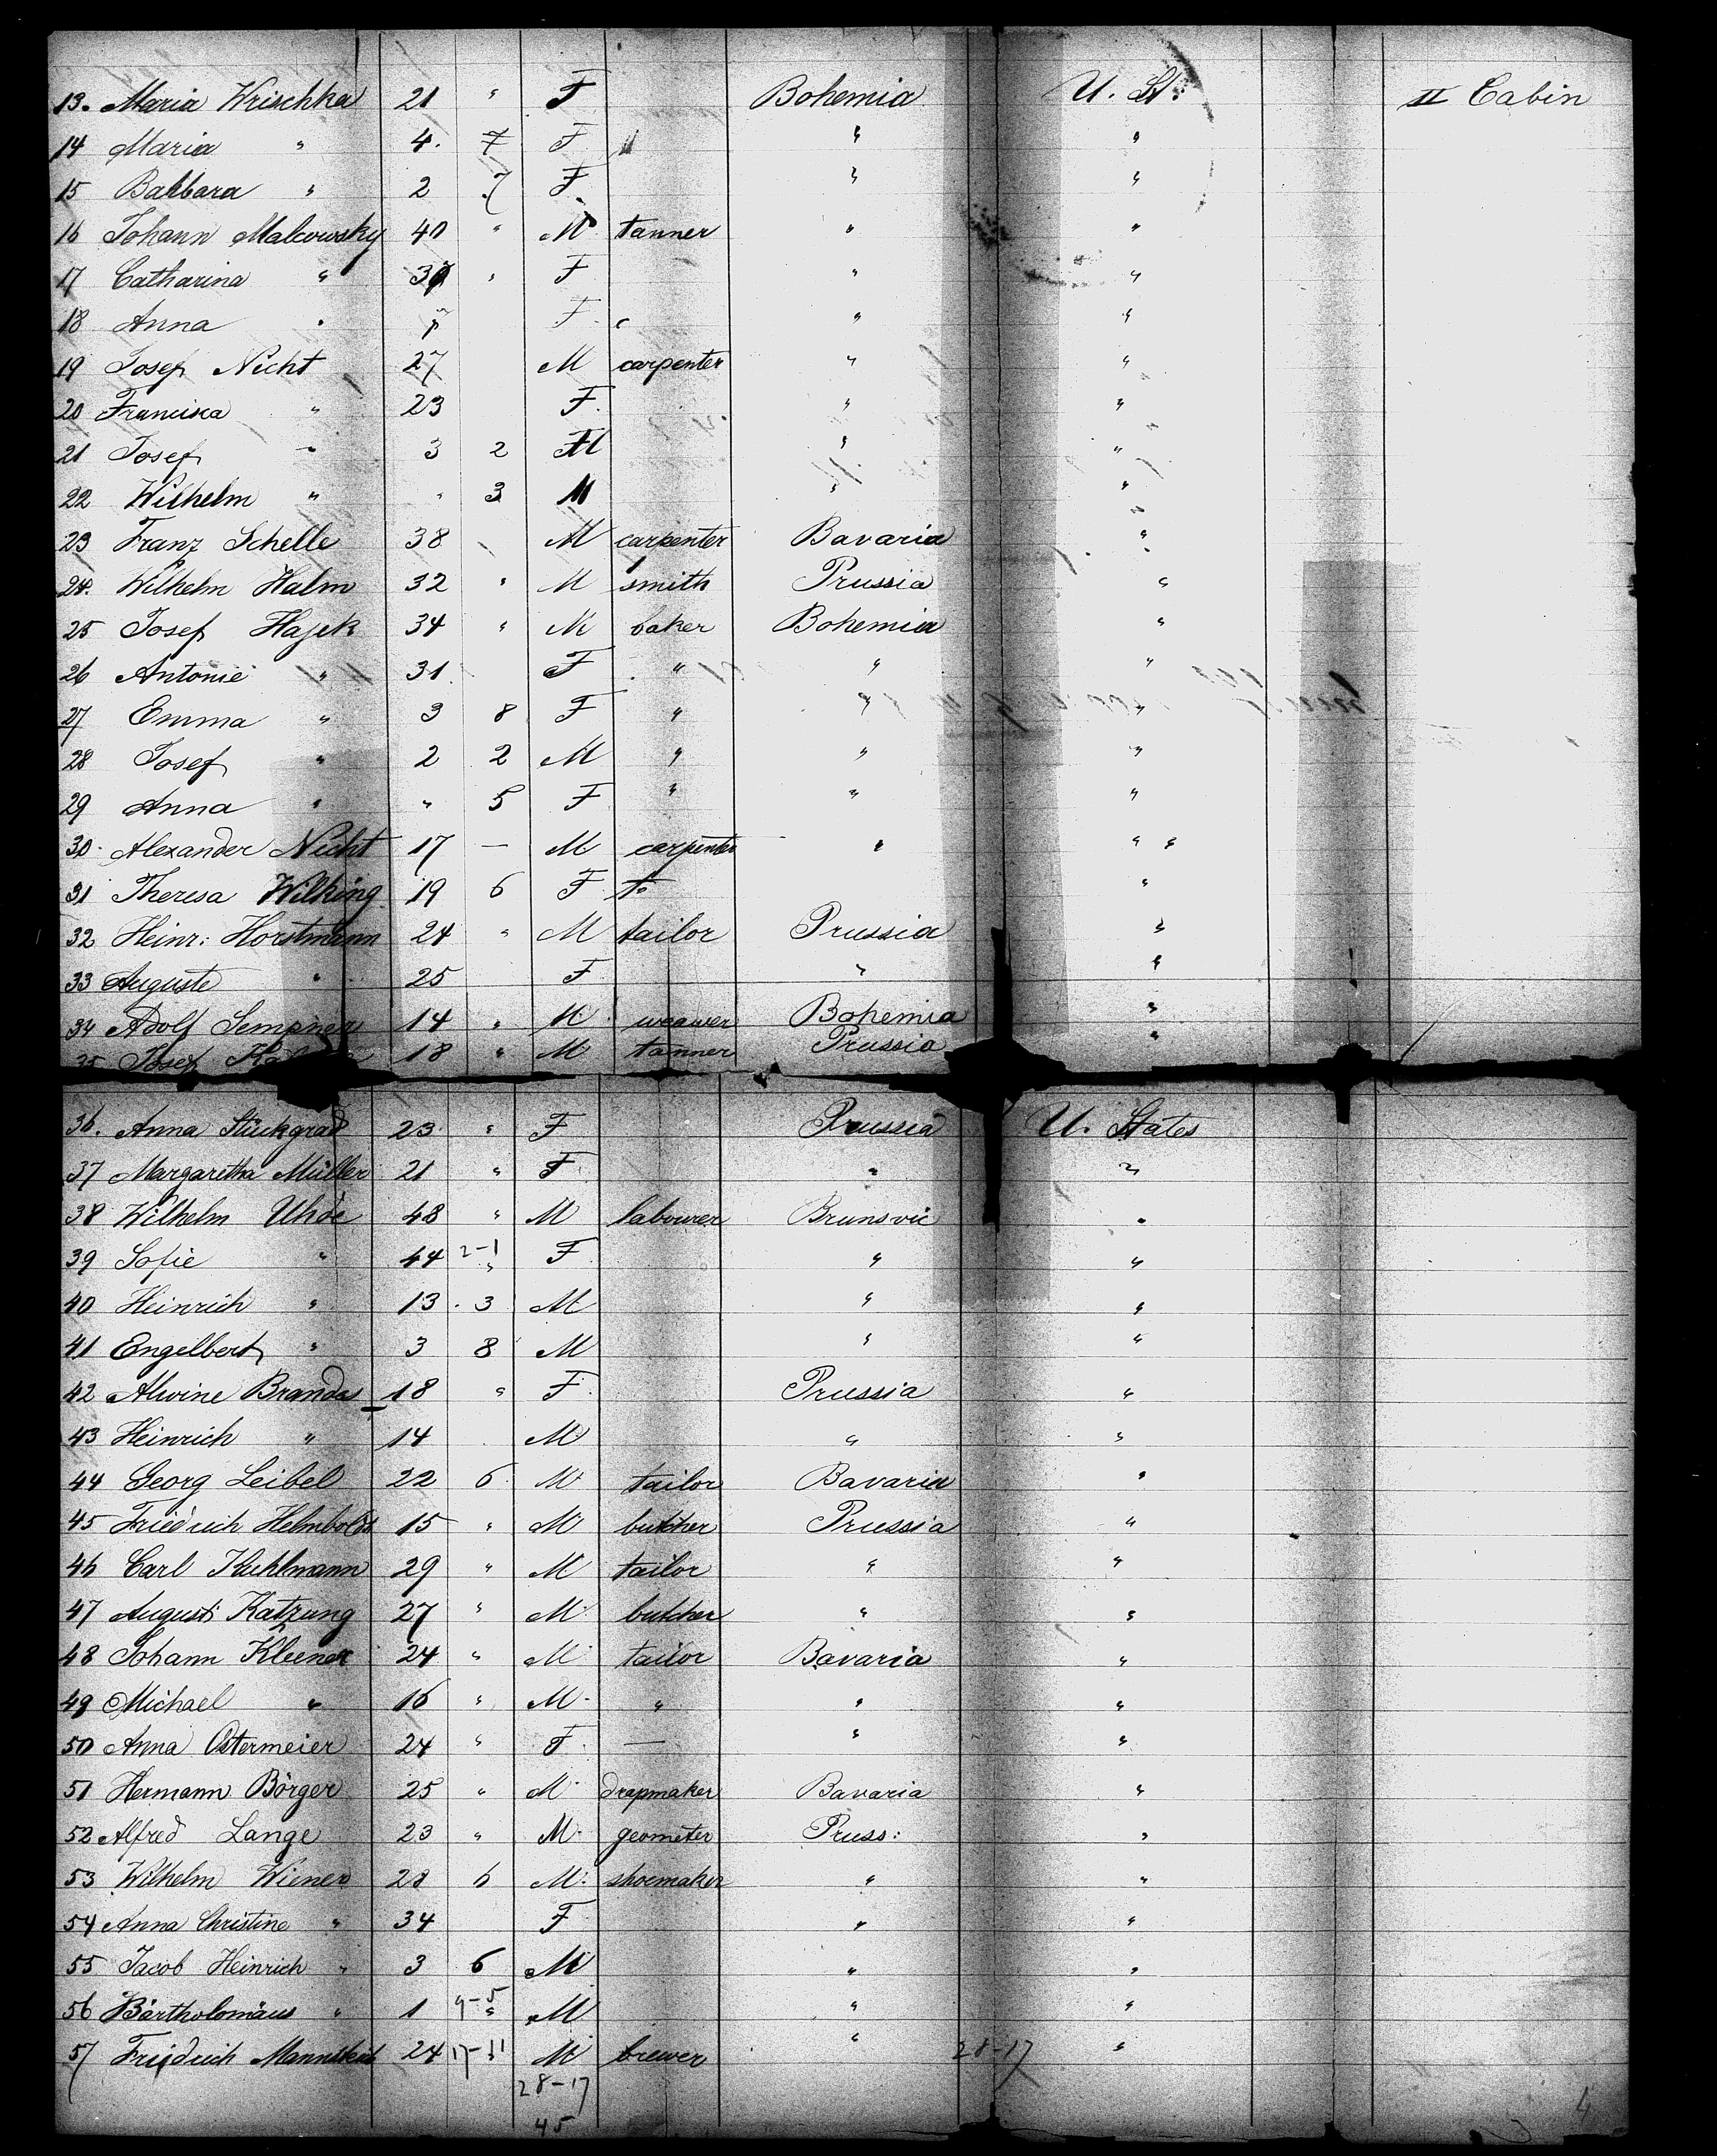 13. Maria Wrischka 21 " F Bohemia U. St: II Cabin
14 Maria " 4. 7 F " " "
15 Barbara " 2 7 F " "
16 Johann Malcowsky 40 " M tanner " "
17 Catharina " 37 " F " "
18 Anna " 7 F " "
19 Josef Nicht 27 M carpenter " "
20 Francisca " 23 F. " "
21 Josef " 3 2 M " "
22 Wilhelm " " 3 M " "
23 Franz Schelle 38 " M carpenter Bavaria "
24. Wilhelm Halm 32 " M smith Prussia "
25 Josef Hajek 34 " M baker Bohemia "
26 Antonie " 31. F " " "
27 Emma " 3 8 F " " "
28 Josef " 2 2 M " " "
29 Anna " " 5 F " " "
30. Alexander Nicht 17 — M carpenter " "
31 Theresa Wilking 19 6 F "
32 Heinr: Horstmann 24 " M tailor Prussia "
33 Auguste " 25 F " "
34 Adolf 14 " M weawer Bohemia "
35 Josef 18 " M tanner Prussia "
36. Anna Stückgrad 23 " F Prussia U. States
37 Margaretha Müller 21 " F " "
38 Wilhelm Uhde 48 " M labourer Brunsvic "
39 Sofie " 44 2-1 " F " "
40 Heinrich " 13. 3 M " "
41 Engelbert " 3 8 M " "
42 Alwine Brandes 18 " F. Prussia "
43 Heinrich " 14 M " "
44 Georg Leibel 22 6 M tailor Bavaria "
45 Friedrich Helmboldt 15 " M butcher Prussia "
46 Carl Kuhlmann 29 " M tailor " "
47 August Katzung 27 " M butcher " "
48 Johann Kleener 24 " M tailor Bavaria "
49 Michael " 16 " M " " "
50 Anna Ostermeier 24 " F — " "
51 Hermann Börger 25 " M drapmaker Bavaria "
52 Alfred Lange 23 " M geometer Pruss: "
53 Wilhelm Wiener 28 6 M: shoemaker " "
54 Anna Christine " 34 F " "
55 Jacob Heinrich " 3 6 M " "
56 Bartholomäus " 1 9-5 " M " "
57 Friedrich 24 17-11 M brewer " 28-17 "
28-17
45
4